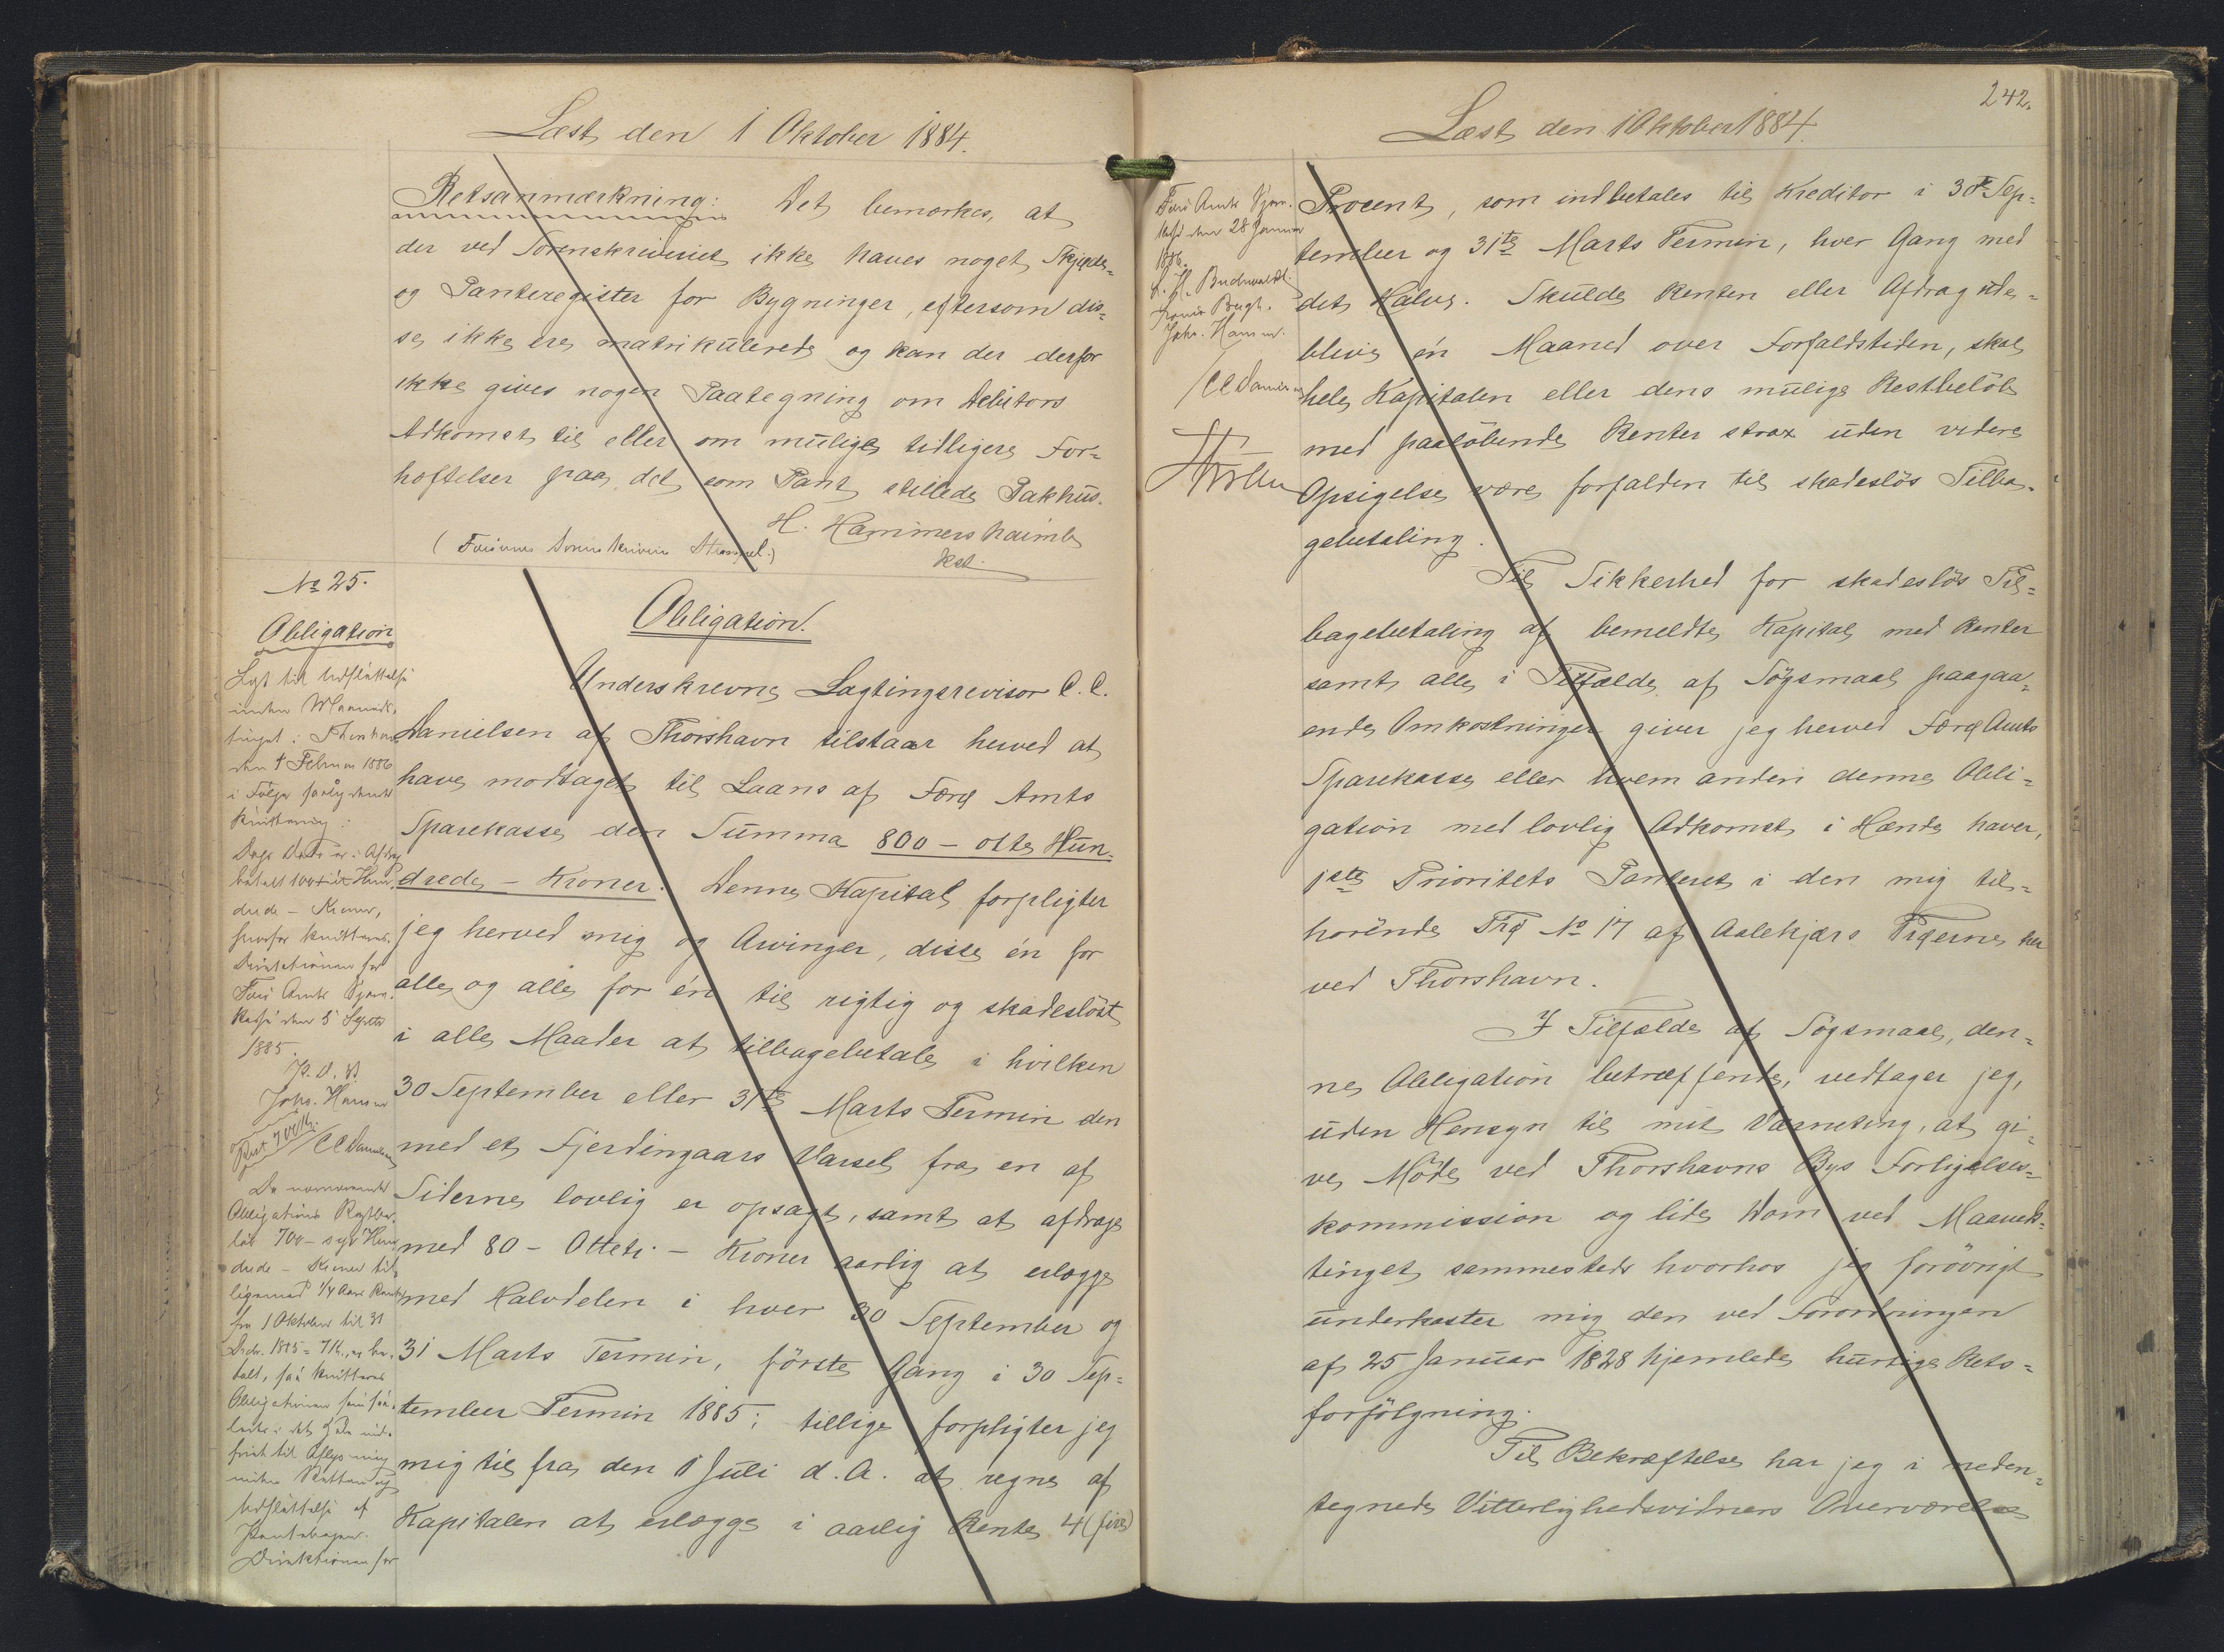 Læst den 1 Oktober 1884.
Retsanmærkning: Det bemærkes, at
der ved Sorenskriveriet ikke haves noget Skjøde-
og Panteregister for Bygninger, eftersom dis-
se ikke ere matrikulerede og kan der derfor
ikke gives nogen Paategning om Debitors
Adkomst til eller om mulige tidligere For-
hæftelser paa det som Pant stillede Pakhus.
H. Hammershaimb
kst.
(Færøernes Sorenskriveris Stempel.)
No 25.
Obligation
Lyst til Udslettelse
inden Maaneds-
tinget i Thorshavn
den 4 Februar 1886
i Følge saalydende
Kvittering:
Dags Dato er i Afdrag
betalt 100 – et Hun-
drede – Kroner,
hvorfor kvitteres.
Direktionen for
Færø Amts Spare-
kasse den 5 Septbr
1885.
P. D. V
Johs. Hansen
/CC Danielsen
Rest 700 Kr.
Da nærværende
Obligations Restbe-
løb 700 – syv Hun-
drede – Kroner til-
ligemed 1/4 Aars Rente
fra 1 Oktober til 31
Decbr. 1885 = 7 Kr., er be-
talt, saa kvitteres
Obligationen saa-
ledes i det Hele ind-
friet til Aflysning
inden Retten og
Udslettelse af
Pantebogen.
Direktionen for
Obligation.
Underskrevne Lagtingsrevisor C. C.
Danielsen af Thorshavn tilstaar herved at
have modtaget til Laans af Færø Amts
Sparekasse den Summa 800 – otte Hun-
drede – Kroner. Denne Kapital forpligter
jeg herved mig og Arvinger, disse én for
alle og alle for én til rigtig og skadesløst
i alle Maader at tilbagebetale i hvilken
30 September eller 31te Marts Termin den
med et Fjerdingaars Varsel fra en af
Siderne lovlig er opsagt, samt at afdrage
med 80 – Otteti – Kroner aarlig at erlægge
med Halvdelen i hver 30 September og
31 Marts Termin, første Gang i 30 Sep-
tember Termin 1885; tillige forpligter jeg
mig til fra den 1 Juli d. A. at regne af
Kapitalen at erlægge i aarlig Rente 4 (fire)
242.
Læst den 1 Oktober 1884.
Færø Amts Spare-
kasse den 28 Januar
1886.
Buchwaldt.
Bugh.
Johs. Hansen.
/CC Danielsen
Procent, som indbetales til Kreditor i 30te Sep-
tember og 31te Marts Termin, hver Gang med
det Halve. Skulde Renten eller Afdrag ude-
blive én Maaned over Forfaldstiden, skal
hele Kapitalen eller dens mulige Restbeløb
med paaløbende Renter strax uden videre
Opsigelse være forfalden til skadesløs Tilba-
gebetaling.
Til Sikkerhed for skadesløs Til-
bagebetaling af bemeldte Kapital med Renter
samt alle i Tilfælde af Søgsmaal paagaa-
ende Omkostninger giver jeg herved Færø Amts
Sparekasse eller hvem anden denne Obli-
gation med lovlig Adkomst i Hænde haver,
1ste Prioritets Panteret i den mig til-
hørende Trø No 17 af Aalekjærs Trøerne her
ved Thorshavn.
I Tilfælde af Søgsmaal, den-
ne Obligation betræffende, vedtager jeg,
uden Hensyn til mit Værneting, at gi-
ve Møde ved Thorshavns Bys Forligelses-
kommission og lide Dom ved Maaneds-
tinget sammesteds hvorhos jeg forøvrigt
underkaster mig den ved Forordningen
af 25 Januar 1828 hjemlede hurtige Rets-
forfølgning.
Til Bekræftelse har jeg i neden-
tegnede Vitterlighedsvidners Overværelse